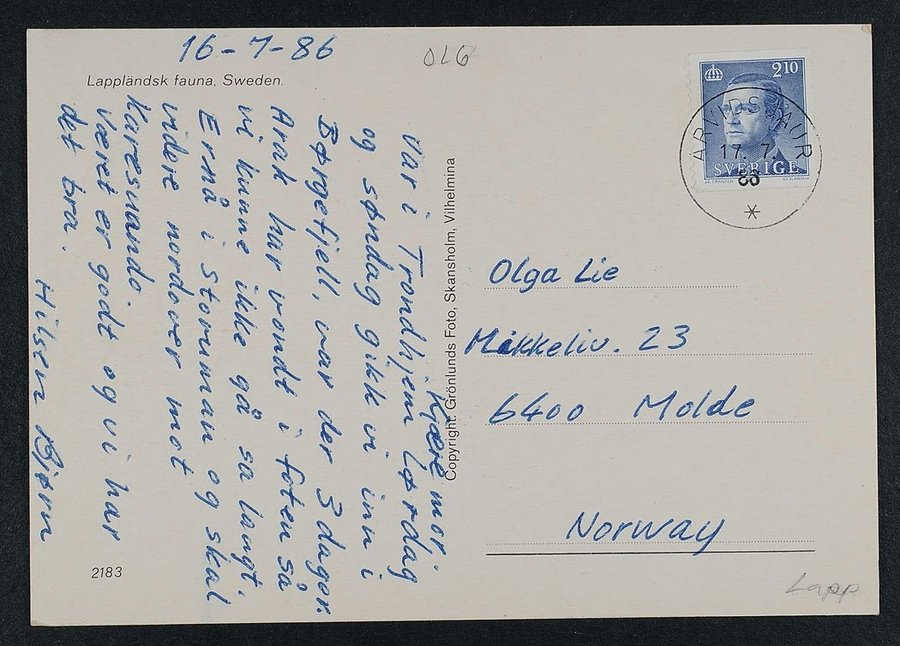 16-7-86
OLG
Lappländsk fauna, Sweden.
Kjære mor.
Var i Trondhjem Lørdag
og søndag gikk vi inn i
Børgefjell, var der 3 dager.
Arak har vondt i foten så
vi kunne ikke gå så langt.
Er nå i storuman og skal
videre nordover mot
Karesuando.
Været er godt og vi har
det bra.
Hilsen Bjørn
2183
Copyright: Grönlunds Foto, Skansholm, Vilhelmina
210
SVERIGE
ARVIDSJAUR
17. 7.
Olga Lie
Mikkeliv. 23
6400 Molde
Norway
Lapp